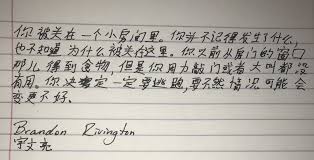 你被关在一个小房间里。你并不记得发生了什么，
也不知道为什么被关在这里。你以前从房门的窗口
那儿得到食物，但是你用力敲门或者大叫都没
有用。你决定一定要逃跑，要不然情况可能会
变更不好。
Brandon Rivington
宇文亮